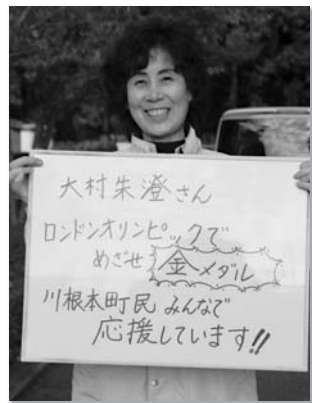 大村朱澄さん
ロンドンオリンピックで
めざせ金メダル
川根本町民みんなで
応援しています!!